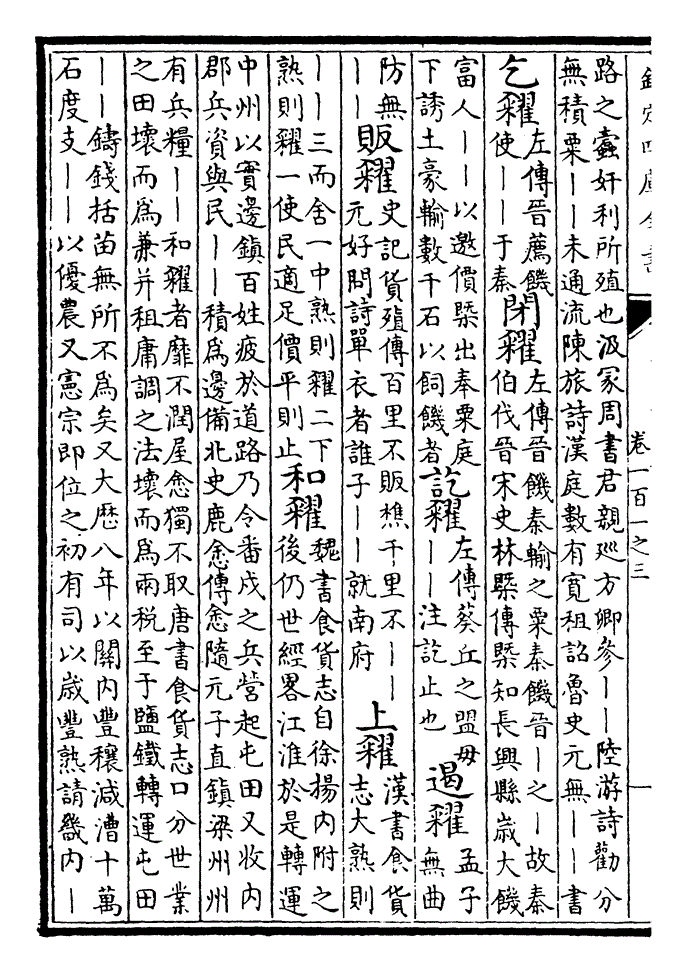 欽定四庫全書
卷一百一之三
一
路之蠧奸利所殖也汲冢周書君親廵方卿參丨丨陸游詩勸分
無積粟丨丨未通流陳旅詩漢庭數有寛租詔魯史元無丨丨書
乞糴左傳晉薦饑使丨丨于秦閉糴左傳晉饑秦輸之粟秦饑晉丨之丨故秦伯伐晉宋史林㮣傳㮣知長興縣嵗大饑
富人丨丨以邀價㮣出奉粟庭
下誘土豪輸數千石以飼饑者訖糴左傳葵丘之盟毋丨丨注訖止也遏糴孟子無曲
防無丨丨販糴史記貨殖傳百里不販樵千里不丨丨元好問詩單衣者誰子丨丨就南府上糴漢書食貨志大熟則
丨丨三而舍一中熟則糴二下
熟則糴一使民適足價平則止和糴魏書食貨志自徐揚内附之後仍世經畧江淮於是轉運
中州以實邊鎮百姓疲於道路乃令番戍之兵營起屯田又收内
郡兵資與民丨丨積為邊備北史鹿悆傳悆隨元子直鎮梁州州
有兵糧丨丨和糴者靡不潤屋悆獨不取唐書食貨志口分世業
之田壞而為兼并租庸調之法壞而為兩税至于鹽鐵轉運屯田
丨丨鑄錢括苗無所不為矣又大歴八年以關内豐穰減漕十萬
石度支丨丨以優農又憲宗即位之初有司以嵗豐熟請畿内丨